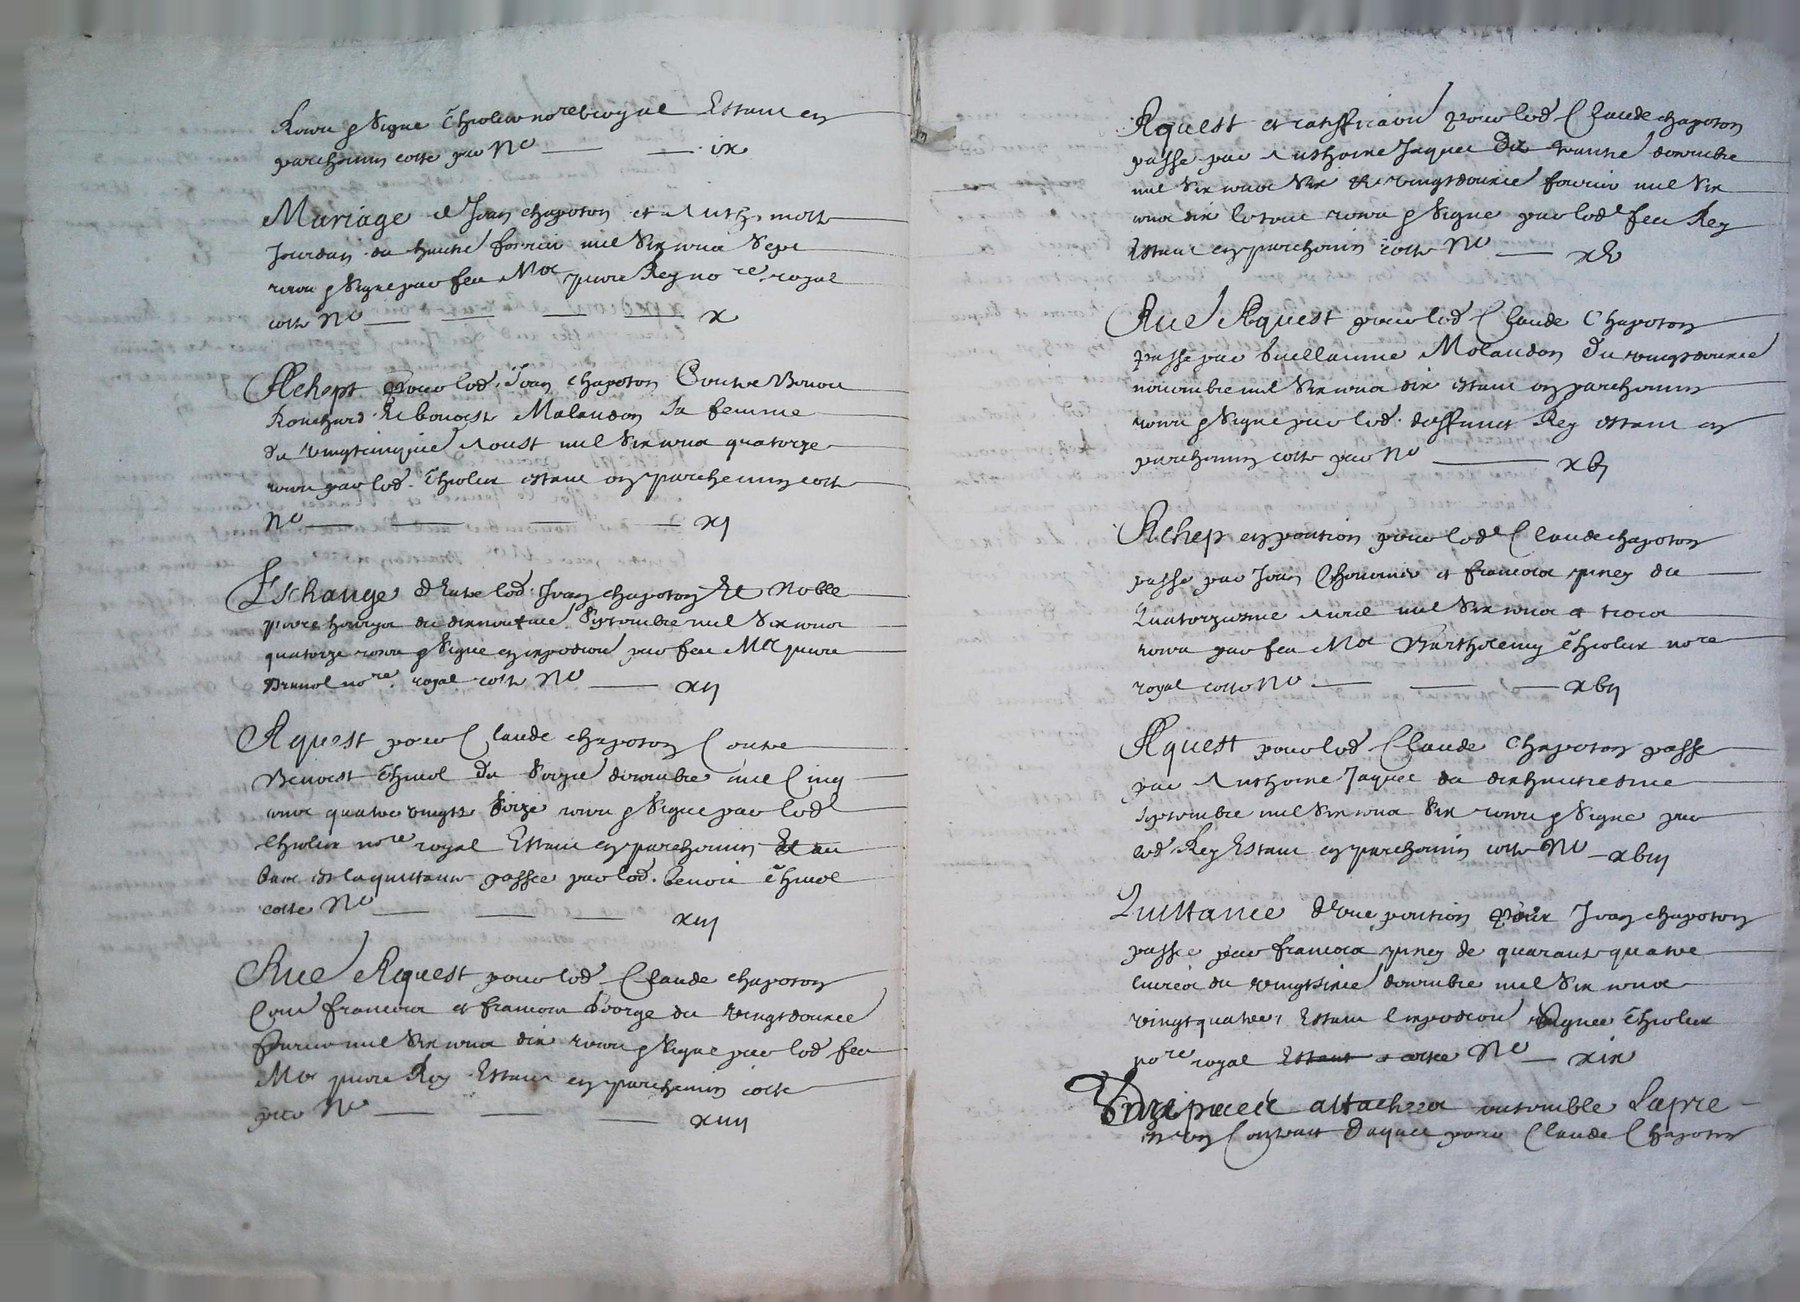 Receu et Signe Thiolier no.re royal Estant en
parchemin cotte par N.o ix
Mariage de Jean chapoton et Anth.
Jourdan du huict.e febvrier mil Six cens Sept
receu et Signe par feu M.re pierre Rey no.re royal
cotte N.o x
Achept pour led. Jean chapoton Contre
et benoiste Malaudon Sa femme
du vingtcinquie. Aoust mil Six cens quatorze
receu par led. Thiolier estant en parchemin cotte
N.o xj
Eschange d'Entre led. Jean chapoton Et Noble
pierre du dixneufvie. Septembre mil Six cens
quatorze receu et Signe en expedition par feu M.re pierre
no.re royal cotte N.o xij
Aquest pour Claude chapoton Contre
Benoist du decembre mil Cinq
cens quatre vingts Seize receu et Signe par led.
Thiolier no.re royal Estant en parchemin Et au
est la quittance passee par led. benoit
cotte N.o xiij
Aquest pour led. Claude chapoton
Contre francois et francois George du vingtdouxie.
febvrier mil Six cens dix receu et Signe par led. feu
M.re pierre Rey Estant en parchemin cotte
par N.o xiiij
Aquest et ratiffication pour led. Claude chapoton
passe par Anthoine Jaquet du trantie. decembre
mil Six cens Six Et vingtdouxie. febvrier mil Six
cens dix le tout receu et Signe par led. feu Rey
Estant en parchemin cotte N.o xv
Aquest pour led. Claude Chapoton
passe par Guillaume Malaudon du vingtdouxie.
novembre mil Six cens dix estant en parchemin
receu et Signe par led. deffunct Rey estant en
parchemin cotte par N.o xvj
Achep en pention pour led. Claude chapoton
passe par Jean et francois piney du
Quatorziesme Avril mil Six cens et trois
receu par feu M.re Barthelemy Thiolier no.re
royal cotte N.o xvij
Aquest pour led. Claude Chapoton passe
par Anthoine Jaquet du dixhuictiesme
Septembre mil Six cens Six receu et Signe par
led. Rey Estant en parchemin cotte N.o xviij
Quittance d'Une pention pour Jean chapoton
passe par francois piney de quarante quatre
livres du decembre mil Six cens
vingt quatre, Estant Expedition Signee Thiolier
no.re royal Estant cotte N.o xix
attachees ensemble La pre
Contract d'aquis pour Claude Chapoton